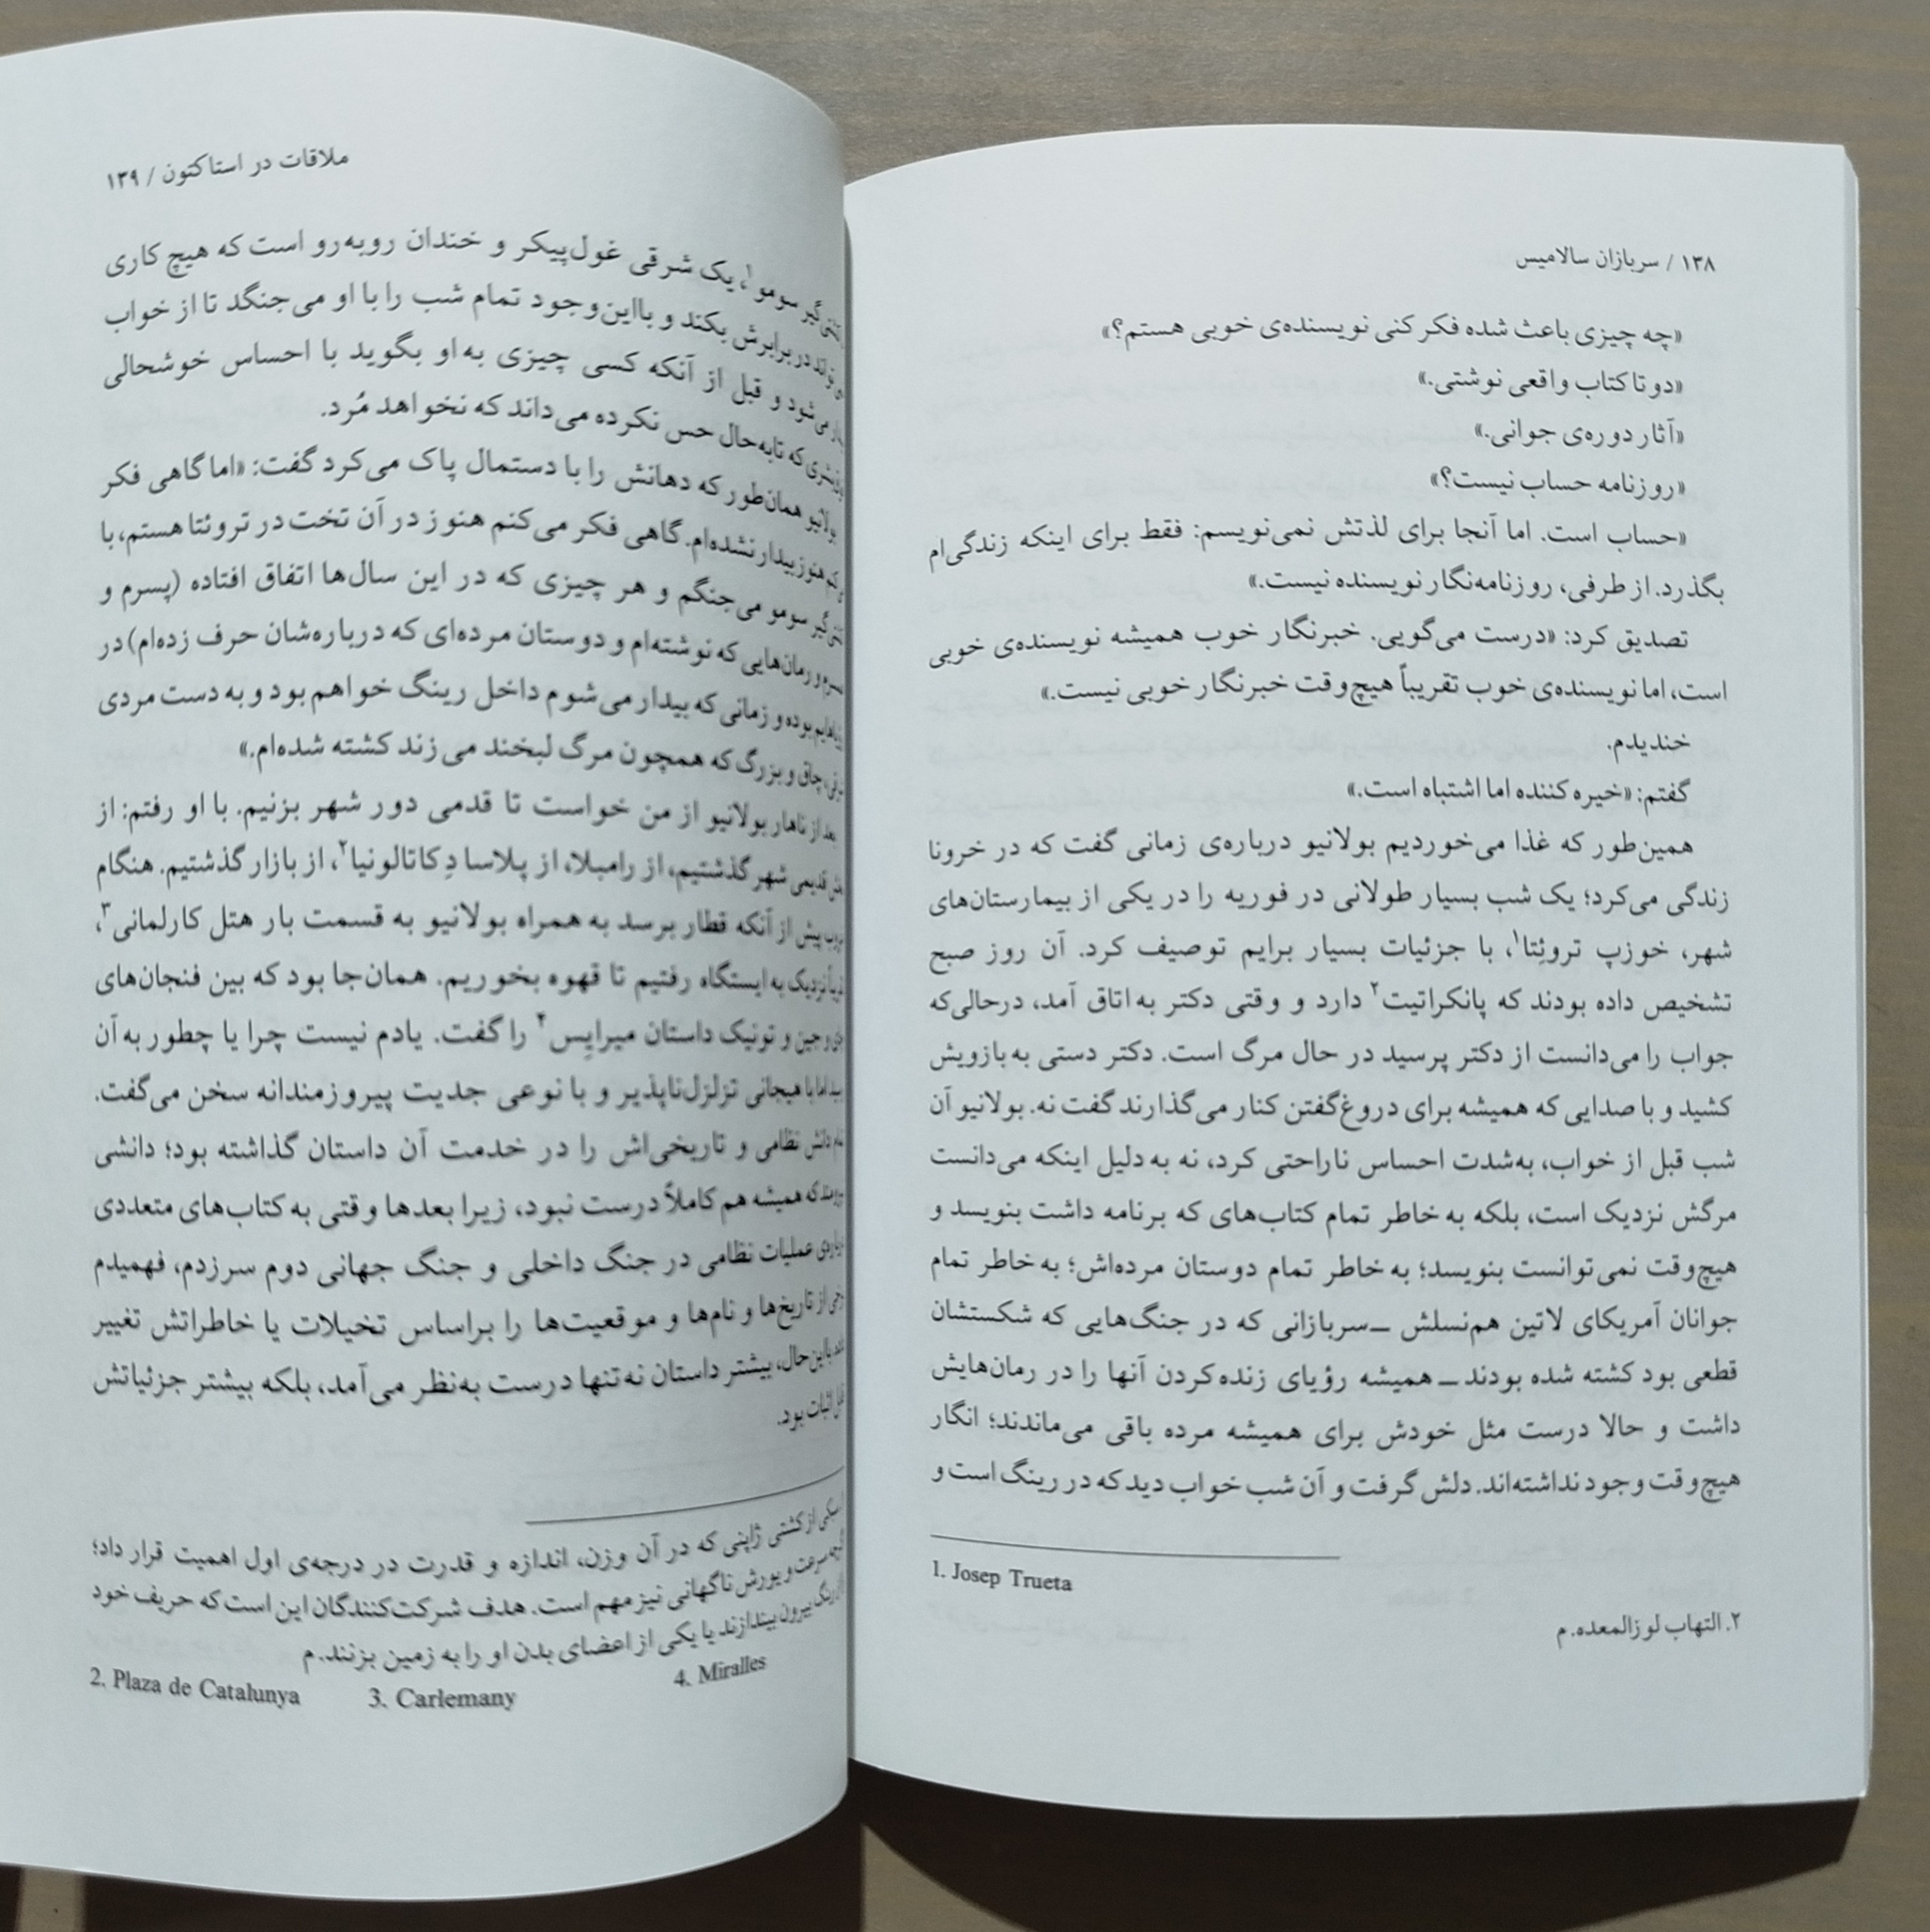 ۱۳۸ / سربازان سالامیس
«چه چیزی باعث شده فکر کنی نویسنده‌ی خوبی هستم؟»
«دو تا کتاب واقعی نوشتی.»
«آثار دوره‌ی جوانی.»
«روزنامه حساب نیست؟»
«حساب است. اما آنجا برای لذتش نمی‌نویسم: فقط برای اینکه زندگی‌ام
بگذرد. از طرفی، روزنامه‌نگار نویسنده نیست.»
تصدیق کرد: «درست می‌گویی. خبرنگار خوب همیشه نویسنده‌ی خوبی
است، اما نویسنده‌ی خوب تقریباً هیچ‌وقت خبرنگار خوبی نیست.»
خندیدم.
گفتم: «خیره‌کننده اما اشتباه است.»
همین‌طور که غذا می‌خوردیم بولانیو درباره‌ی زمانی گفت که در خرونا
زندگی می‌کرد؛ یک شب بسیار طولانی در فوریه را در یکی از بیمارستان‌های
شهر، خوزپ تروئِتا۱، با جزئیات بسیار برایم توصیف کرد. آن روز صبح
تشخیص داده بودند که پانکراتیت۲ دارد و وقتی دکتر به اتاق آمد، درحالی‌که
جواب را می‌دانست از دکتر پرسید در حال مرگ است. دکتر دستی به بازویش
کشید و با صدایی که همیشه برای دروغ‌گفتن کنار می‌گذارند گفت نه. بولانیو آن
شب قبل از خواب، به‌شدت احساس ناراحتی کرد، نه به دلیل اینکه می‌دانست
مرگش نزدیک است، بلکه به خاطر تمام کتاب‌های که برنامه داشت بنویسد و
هیچ‌وقت نمی‌توانست بنویسد؛ به خاطر تمام دوستان مرده‌اش؛ به خاطر تمام
جوانان آمریکای لاتین هم‌نسلش ـــ سربازانی که در جنگ‌هایی که شکستشان
قطعی بود کشته شده بودند ـــ همیشه رؤیای زنده‌کردن آنها را در رمان‌هایش
داشت و حالا درست مثل خودش برای همیشه مرده باقی می‌ماندند؛ انگار
هیچ‌وقت وجود نداشته‌اند. دلش گرفت و آن شب خواب دید که در رینگ است و
1. Josep Trueta
۲. التهاب لوزالمعده. م
ملاقات در استاکتون / ۱۳۹
سومو۱، یک شرقی غول‌پیکر و خندان روبه‌رو است که هیچ کاری
در برابرش بکند و بااین‌وجود تمام شب را با او می‌جنگد تا از خواب
می‌شود و قبل از آنکه کسی چیزی به او بگوید با احساس خوشحالی
که تابه‌حال حس نکرده می‌داند که نخواهد مُرد.
بولانیو همان‌طور که دهانش را با دستمال پاک می‌کرد گفت: «اما گاهی فکر
هنوز بیدار نشده‌ام. گاهی فکر می‌کنم هنوز در آن تخت در تروئتا هستم، با
سومو می‌جنگم و هر چیزی که در این سال‌ها اتفاق افتاده (پسرم و
و رمان‌هایی که نوشته‌ام و دوستان مرده‌ای که درباره‌شان حرف زده‌ام) در
بوده و زمانی که بیدار می‌شوم داخل رینگ خواهم بود و به دست مردی
چاق و بزرگ که همچون مرگ لبخند می‌زند کشته شده‌ام.»
از ناهار بولانیو از من خواست تا قدمی دور شهر بزنیم. با او رفتم: از
قدیمی شهر گذشتیم، از رامبلا، از پلاسا دِ کاتالونیا۲، از بازار گذشتیم. هنگام
پیش از آنکه قطار برسد به همراه بولانیو به قسمت بار هتل کارلمانی۳،
نزدیک به ایستگاه رفتیم تا قهوه بخوریم. همان‌جا بود که بین فنجان‌های
و جین و تونیک داستان میرایِس۴ را گفت. یادم نیست چرا یا چطور به آن
اما با هیجانی تزلزل‌ناپذیر و با نوعی جدیت پیروزمندانه سخن می‌گفت.
دانش نظامی و تاریخی‌اش را در خدمت آن داستان گذاشته بود؛ دانشی
که همیشه هم کاملاً درست نبود، زیرا بعدها وقتی به کتاب‌های متعددی
عملیات نظامی در جنگ داخلی و جنگ جهانی دوم سر زدم، فهمیدم
از تاریخ‌ها و نام‌ها و موقعیت‌ها را براساس تخیلات یا خاطراتش تغییر
بااین‌حال، بیشتر داستان نه‌تنها درست به‌نظر می‌آمد، بلکه بیشتر جزئیاتش
اثبات بود.
از کشتی ژاپنی که در آن وزن، اندازه و قدرت در درجه‌ی اول اهمیت قرار داد؛
سرعت و یورش ناگهانی نیز مهم است. هدف شرکت‌کنندگان این است که حریف خود
بیرون بیندازند یا یکی از اعضای بدن او را به زمین بزنند. م
2. Plaza de Catalunya 3. Carlemany 4. Miralles